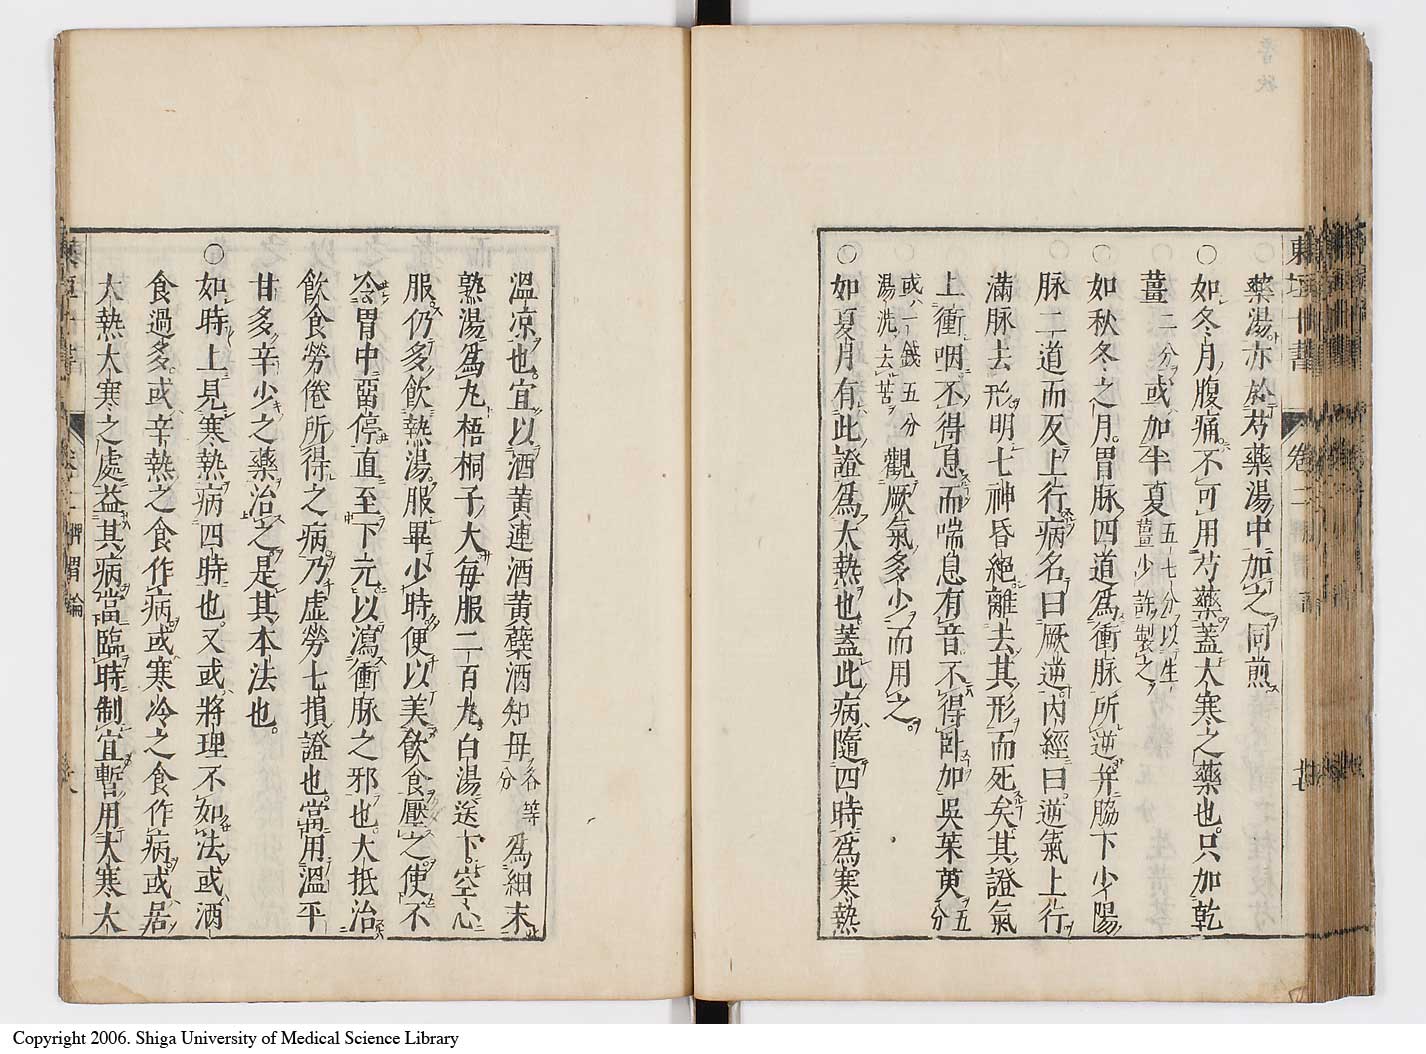 東垣十書 卷二 脾胃論 廿七
藥湯亦於芍藥湯中加之同煎
○如冬月腹痛不可用芍藥蓋大寒之藥也只加乾
薑二分或加半夏五七分以生薑少許製之
○如秋冬之月胃脉四道爲衝脉所逆并脇下少陽
脉二道而反上行病名曰厥逆内經曰逆氣上行
滿脉去形明七神昏絶離去其形而死矣其證氣
上衝咽不得息而喘息有音不得卧加吳茱萸五分
或一錢五分湯洗去苦觀厥氣多少而用之
○如夏月有此證爲大熱也蓋此病隨四時爲寒熱
溫凉也宜以酒黄連酒黄蘗酒知母各等分爲細末
熟湯爲丸梧桐子大每服二百丸白湯送下空心
服仍多飲熱湯服畢少時便以美飲食壓之使不
令胃中留停直至下元以瀉衝脉之邪也大抵治
飲食勞倦所得之病乃虚勞七損證也當用溫平
甘多辛少之藥治之是其本法也
○如時上見寒熱病四時也又或將理不如法或酒
食過多或辛熱之食作病或寒冷之食作病或居
大熱大寒之處益其病當臨時制宜暫用大寒大
卷二 脾胃論
Copyright 2006. Shiga University of Medical Science Library